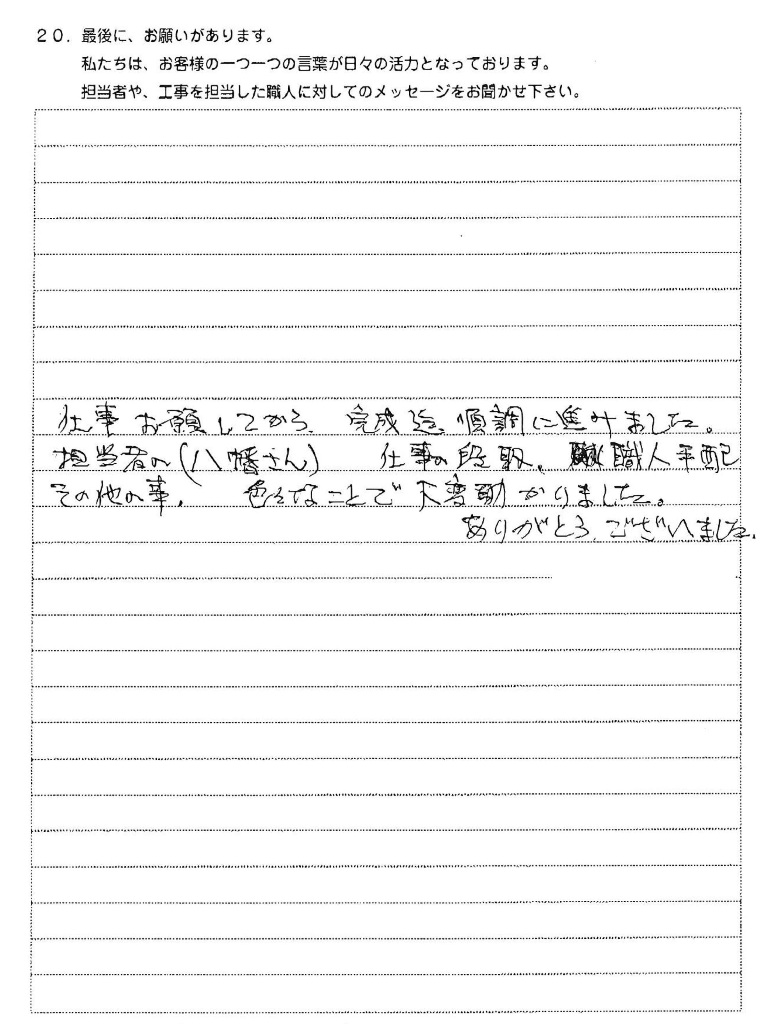 20. 最後に、お願いがあります。
私たちは、お客様の一つ一つの言葉が日々の活力となっております。
担当者や、工事を担当した職人に対してのメッセージをお聞かせ下さい。
仕事お願いしてから、完成迄、順調に進みました。
担当者の(八幡さん) 仕事の段取、職人手配
その他の事、 色々なことで大変助かりました。
ありがとうございました。